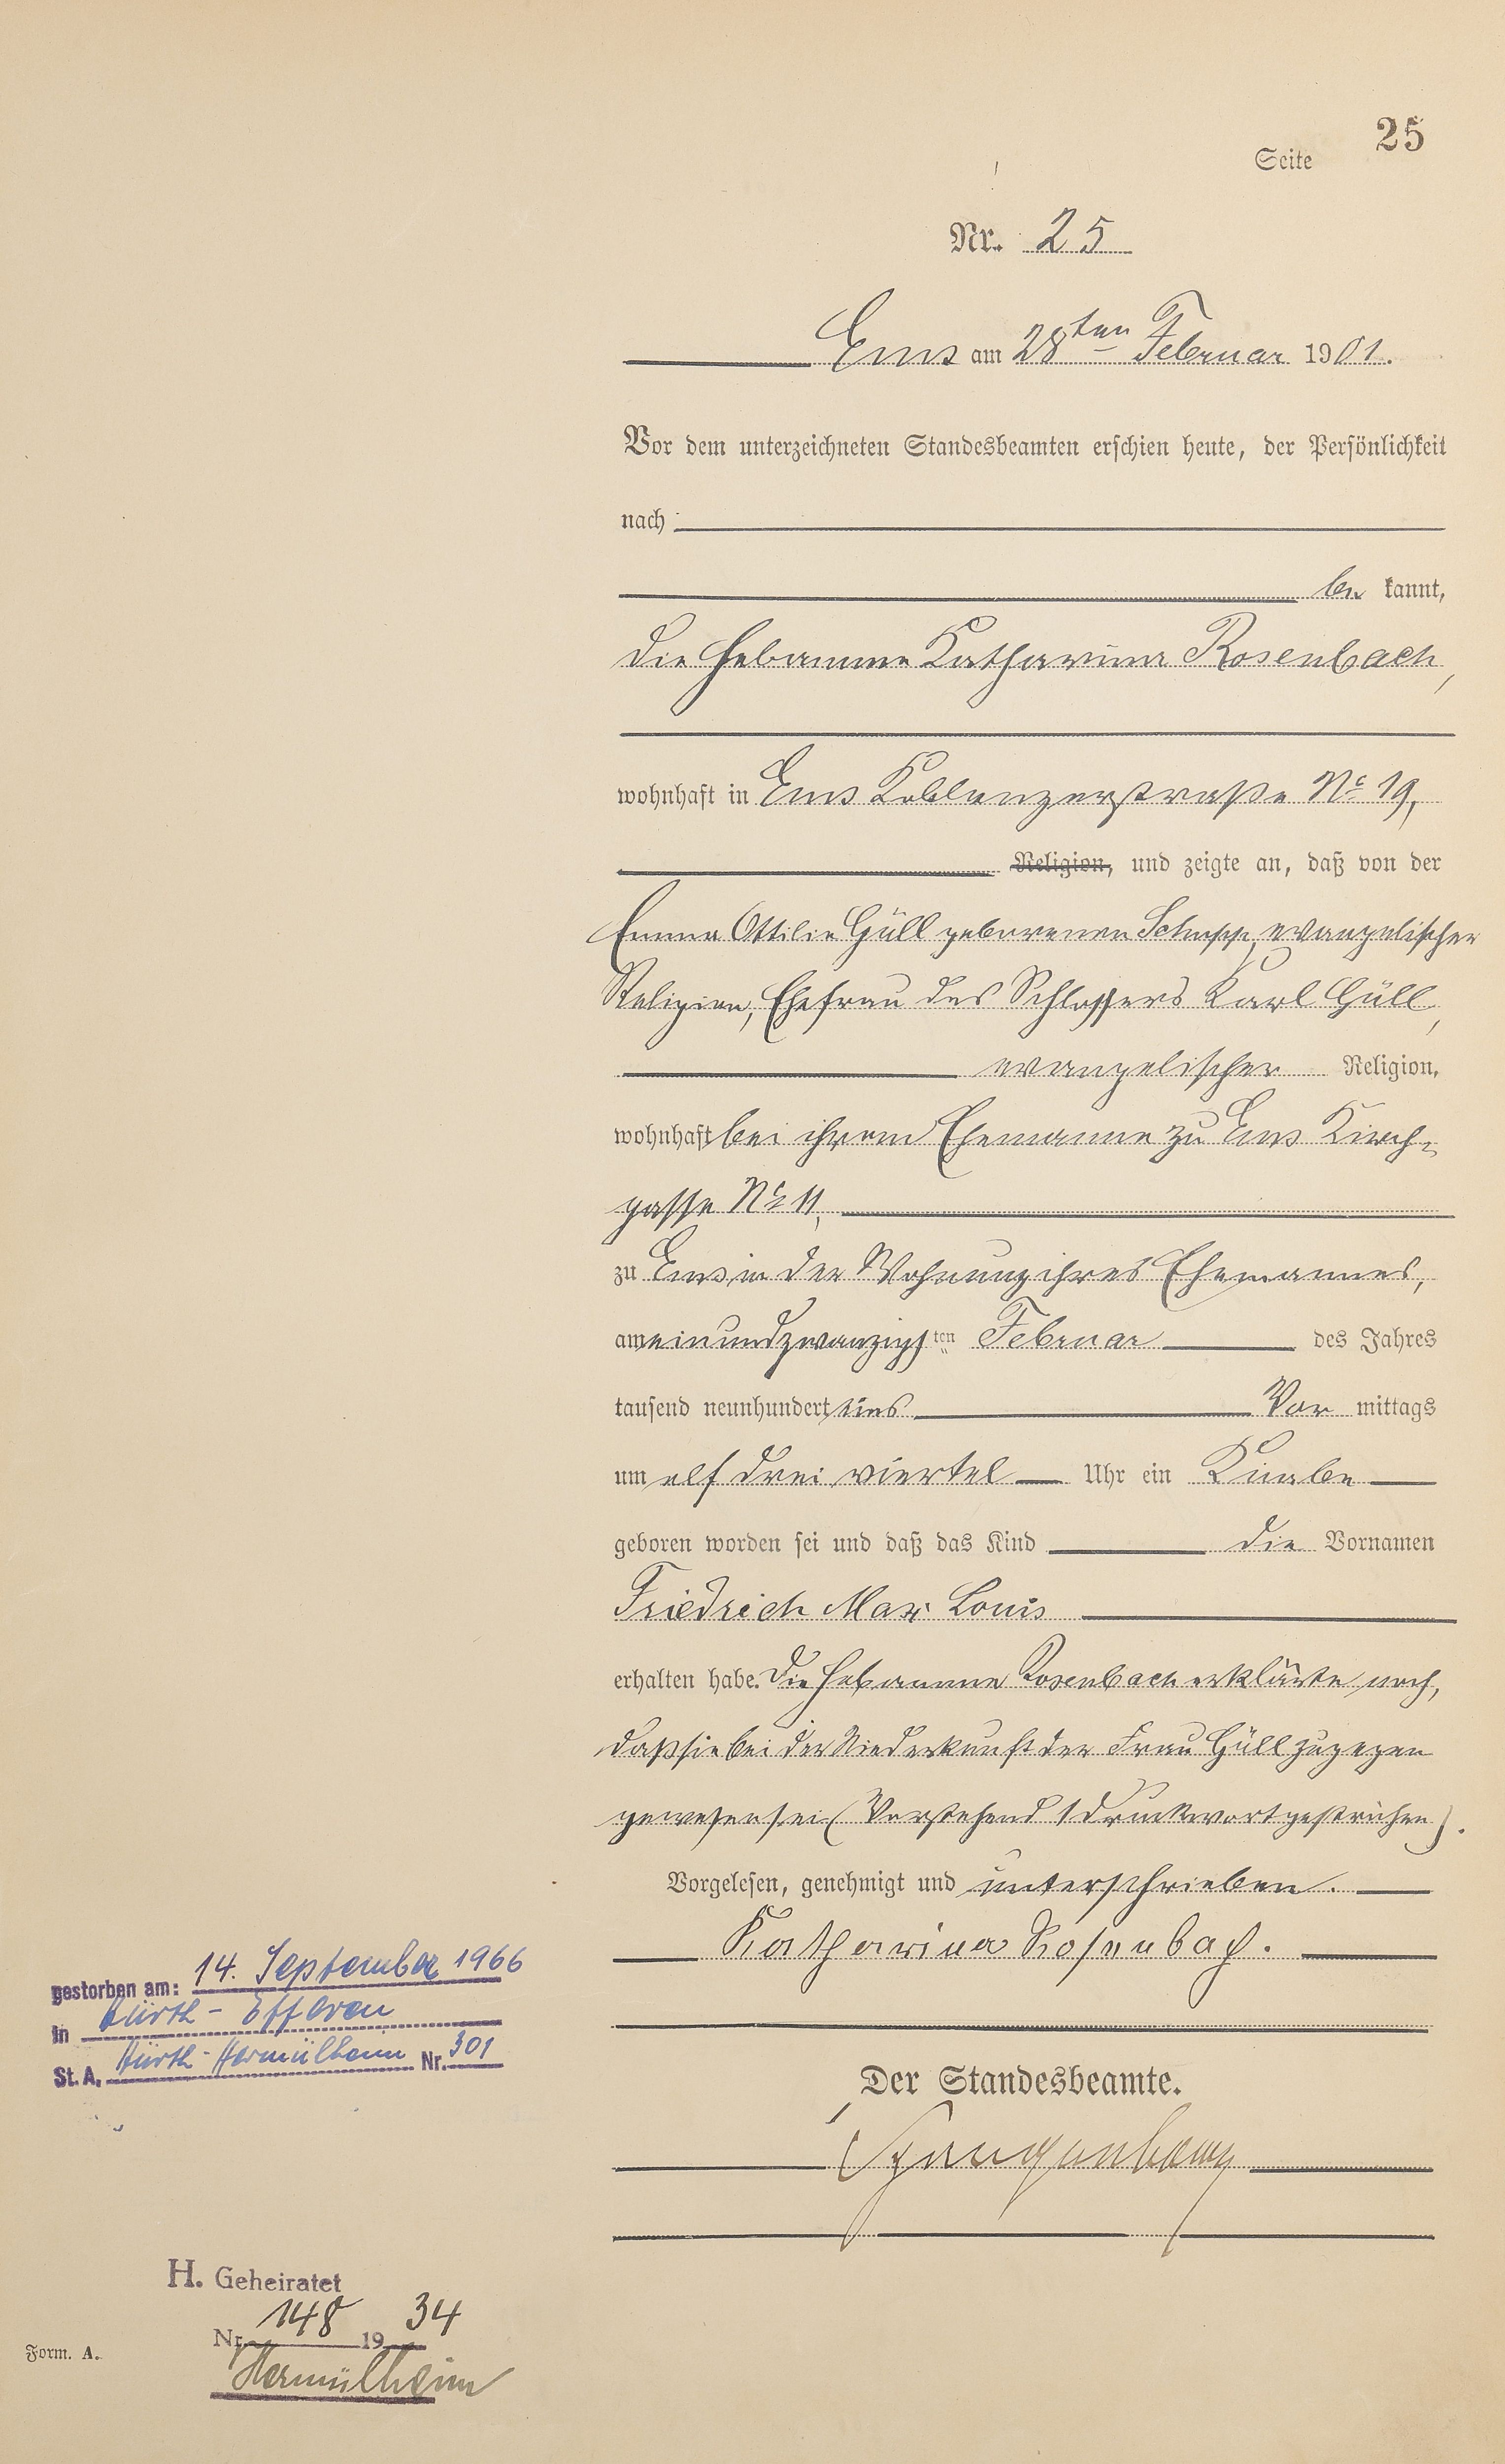 Seite 25
Nr. 25
Ems am 28ten Februar 1901.
Vor dem unterzeichneten Standesbeamten erschien heute, der Persönlichkeit
nach
be kannt,
die Hebamme Katharina Rosenbach,
wohnhaft in Ems Koblenzerstraße No 19,
Religion, und zeigte an, daß von der
Emma Ottilie Güll geborenen Schupp, evangelischer
Religion, Ehefrau des Schlossers Karl Güll,
evangelischer Religion,
wohnhaft bei ihrem Ehemanne zu Ems Kirch-
gasse No 11,
zu Ems in der Wohnung ihres Ehemannes,
am einundzwanzigsten Februar des Jahres
tausend neunhundert eins Vor mittags
um elf drei viertel Uhr ein Knabe
geboren worden sei und daß das Kind die Vornamen
Friedrich Max Louis
erhalten habe. Die Hebamme Rosenbach erklärte noch,
daß sie bei der Niederkunft der Frau Güll zugegen
gewesen sei (Vorstehend 1 Druckwort gestrichen).
Vorgelesen, genehmigt und unterschrieben.
Katharina Rosenbach.
Der Standesbeamte.
gestorben am: 14. September 1966
in Hürth-Efferen
St. A. Hürth-Hermülheim Nr. 301
H. Geheiratet
Nr. 148 1934
Hermülheim
Form. A.